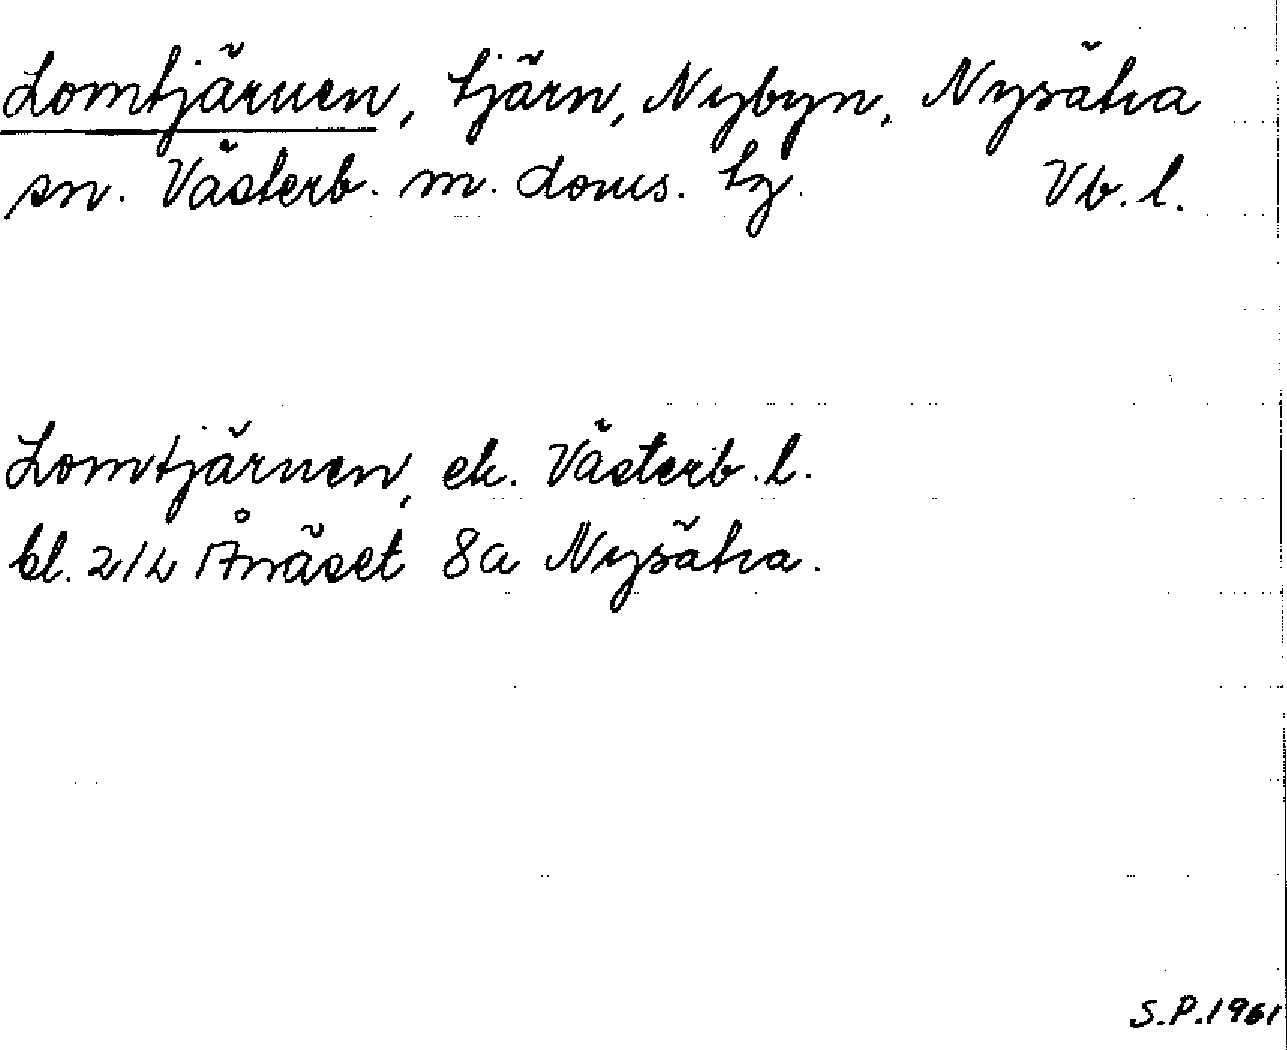 Lomtjärnen, tjärn, Nybyn, Nysätra
sn. Västerb. m. doms. tg. Vb. l.
Lomtjärnen, ek. Västerb. l.
bl. 21L Ånäset 8a Nysätra.
S.P.1961